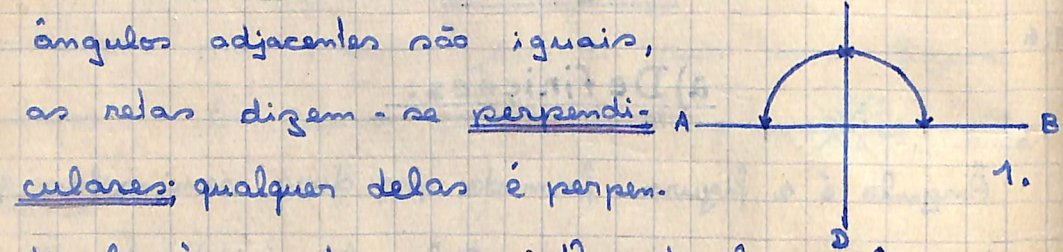 ângulos adjacentes são iguais,
as retas dizem-se perpendi-
A B
culares; qualquer delas é perpen-
1.
D